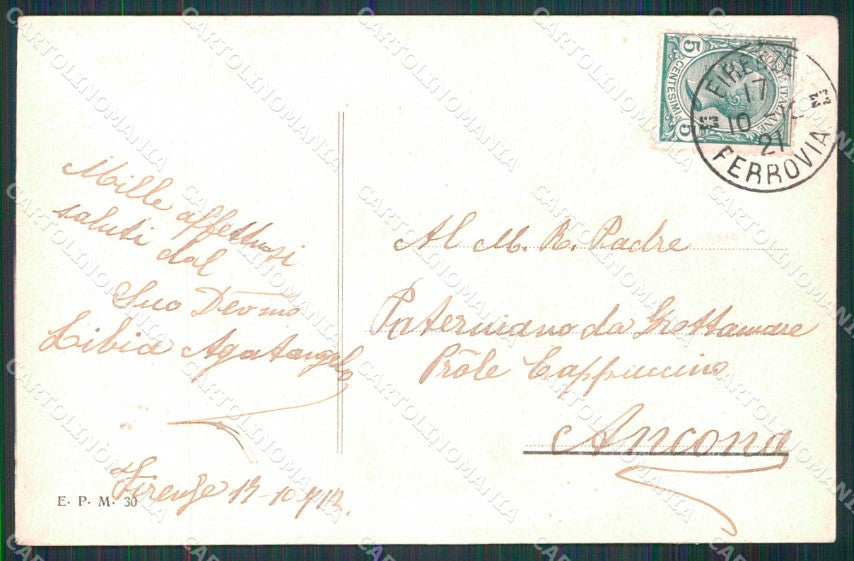 Mille affettuosi
saluti dal
Suo Devmo
Libia Agatangelo
Firenze 17-10-912.
E. P. M. 30
5 CENTESIMI 5
FIRENZE
17
10
21
FERROVIA
Al M. R. Padre
Paterniano da Grottamare
Prôle Cappuccino
Ancona
CARTOLINOMANIA